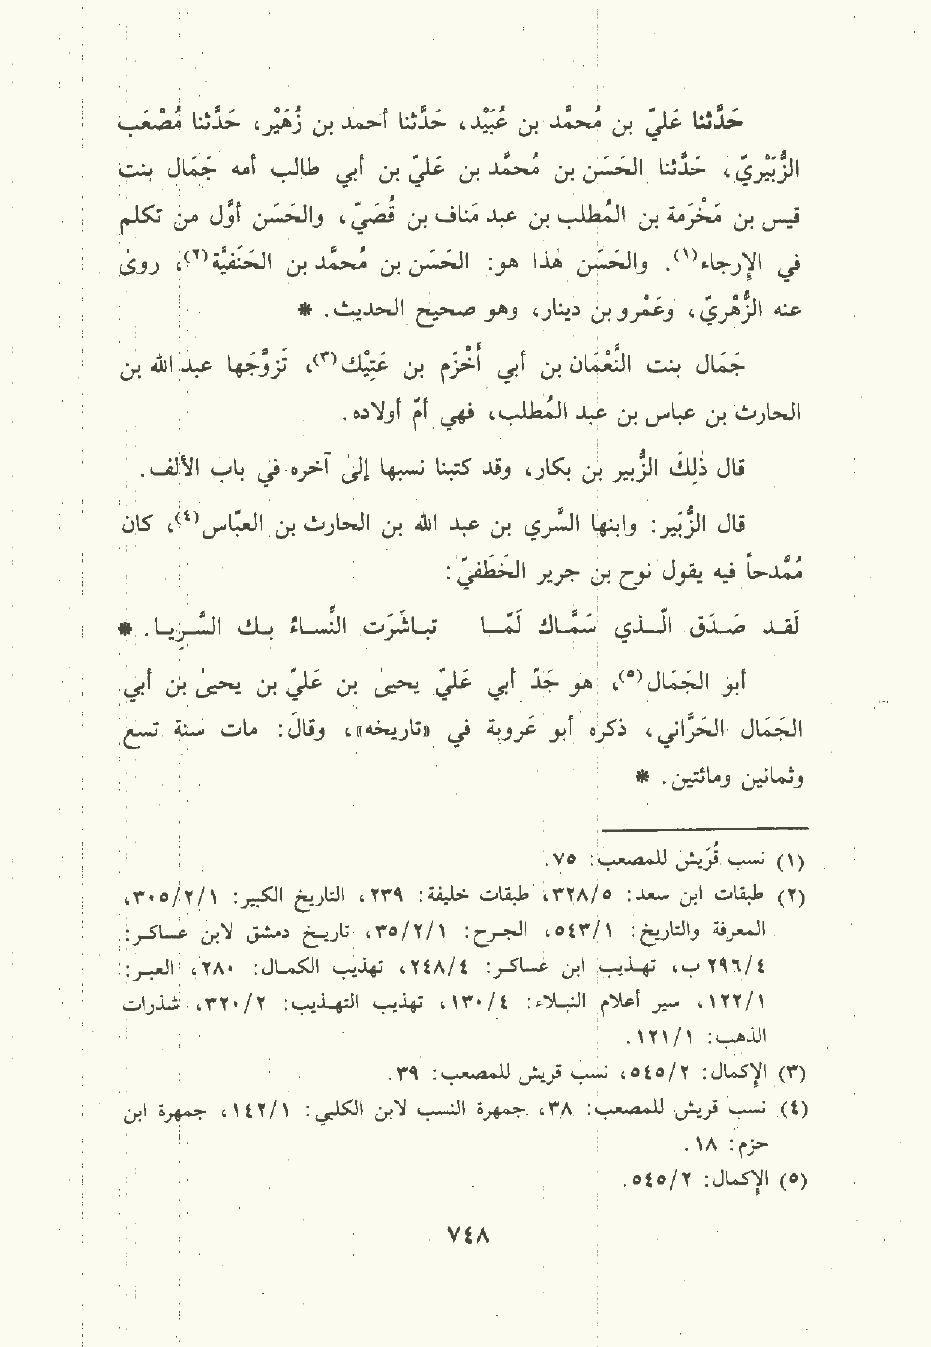 حَدَّثنا عَليّ بن مُحمَّد بن عُبَيْد، حَدَّثنا أحمد بن زُهَيْر، حَدَّثنا مُصْعَب
الزُّبَيْريّ، حَدَّثنا الحَسَن بن مُحمَّد بن عَليّ بن أبي طالب أمه جَمَال بنت
قيس بن مَخْرَمة بن المُطلب بن عبد مَناف بن قُصَيّ، والحَسَن أوَّل من تكلم
في الإرجاء(١). والحَسَن هذا هو: الحَسَن بن مُحمَّد بن الحَنَفيَّة(٢)، روىٰ
عنه الزُّهْريّ، وعَمْرو بن دينار، وهو صحيح الحديث. *
جَمَال بنت النُّعْمَان بن أبي أخْزَم بن عَتِيْك(٣)، تَزوَّجَها عبد الله بن
الحارث بن عباس بن عبد المُطلب، فهي أمّ أولاده.
قال ذٰلِكَ الزُّبير بن بكار، وقد كتبنا نسبها إلىٰ آخره في باب الألف.
قال الزُّبَير: وابنها السَّري بن عبد الله بن الحارث بن العبَّاس(٤)، كان
مُمَّدحاً فيه يقول نوح بن جرير الخَطَفيّ:
لَقـد صَـدَق الّـذي سَمَّـاك لَمّـا تبـاشَرَت النِّسـاءُ بـك السَّـرِيـا. *
أبو الجَمَال(٥)، هو جَدّ أبي عَليّ يحيىٰ بن عَليّ بن يحيىٰ بن أبي
الجَمَال الحَرَّاني، ذكره أبو عَروبة في «تاريخه»، وقالَ: مات سنة تسع
وثمانين ومائتين. *
(١) نسب قُرَيش للمصعب: ٧٥.
(٢) طبقات ابن سعد: ٣٢٨/٥، طبقات خليفة: ٢٣٩، التاريخ الكبير: ٣٠٥/٢/١،
المعرفة والتاريخ: ٥٤٣/١، الجـرح: ٣٥/٢/١، تاريـخ دمشق لابن عسـاكـر:
٢٩٦/٤ ب، تهـذيـب ابن عسـاكـر: ٢٤٨/٤، تهذيب الكمـال: ٢٨٠، العبـر:
١٢٢/١، سير أعلام النبـلاء: ١٣٠/٤، تهذيب التهـذيـب: ٣٢٠/٢، شذرات
الذهب: ١٢١/١.
(٣) الإكمال: ٥٤٥/٢، نسب قريش للمصعب: ٣٩.
(٤) نسب قريش للمصعب: ٣٨، جمهرة النسب لابن الكلبي: ١٤٢/١، جمهرة ابن
حزم: ١٨.
(٥) الإكمال: ٥٤٥/٢.
٧٤٨